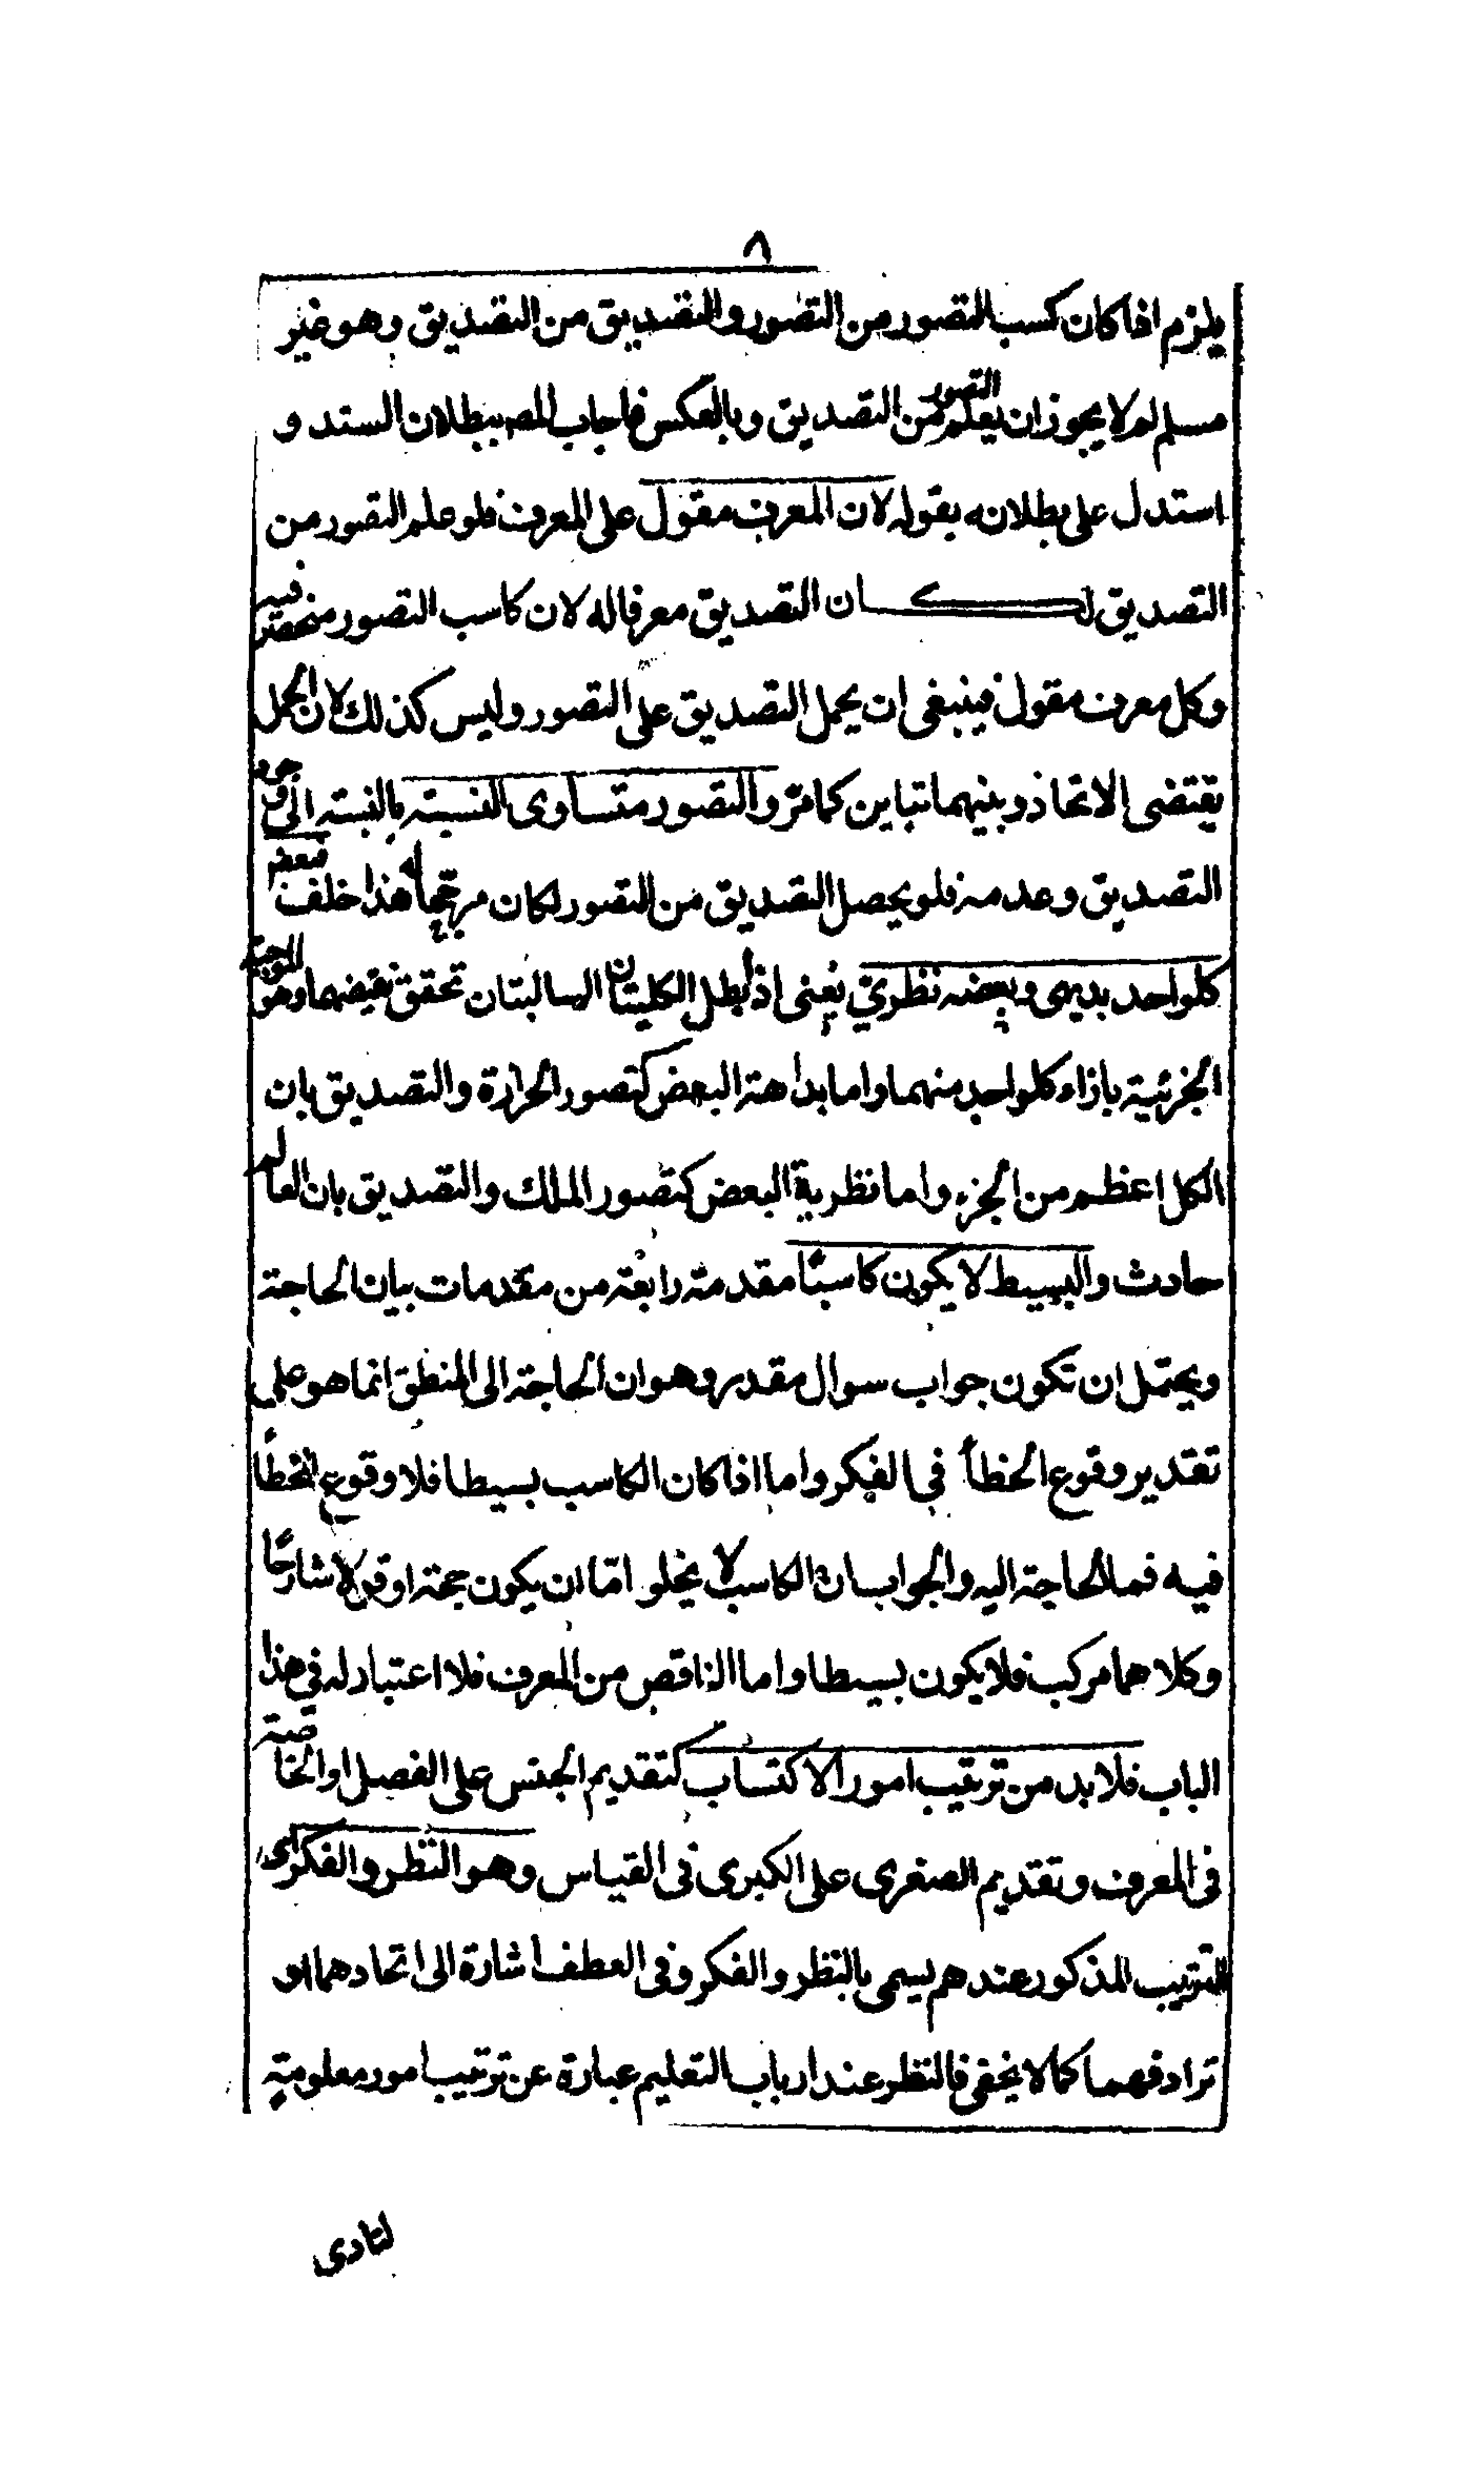 ٨
يلزم اذا كان كسب التصور من التصور والتصديق من التصديق وهو غير
مسلم لم لا يجوز ان يعلم التصور من التصديق وبالعكس فاجاب المصـ ببطلان السند و
استدل على بطلانه بقوله لان المعرف مقول على المعرف فلو علم التصور من
التصديق لكان التصديق معرفا له لان كاسب التصور منحصر فيه
وكل معرف مقول فينبغى ان يحمل التصديق على التصور وليس كذلك لان الحمل
يقتضى الاتحاد وبينهما تباين كما مر والتصور متساوى النسبة بالنسبة الى وجود
التصديق وعدمه فلو يحصل التصديق من التصور لكان مرجحا له هذا خلف فبعض
كلواحد بديهى وبعضه نظرى يعنى اذا بطل الكليتان السالبتان تحقق نقيضهما وهو الموجبة
الجزئية بازاء كلواحد منهما واما بداهة البعض كتصور الحرارة والتصديق بان
الكل اعظم من الجزء واما نظرية البعض كتصور الملك والتصديق بان العالم
حادث والبسيط لا يكون كاسبًا مقدمة رابعة من مقدمات بيان الحاجة
ويحتمل ان تكون جواب سوال مقدر وهو ان الحاجة الى المنطق انما هو على
تقدير وقوع الخطأ فى الفكر واما اذا كان الكاسب بسيطا فلا وقوع الخطأ
فيه فما الحاجة اليه والجواب ان الكاسب لا يخلو امّا ان يكون حجة او قولا شارحًا
وكلاهما مركب فلا يكون بسيطا واما الناقص من المعرف فلا اعتبار له فى هذا
الباب فلا بد من ترتيب امور الاكتساب كتقديم الجنس على الفصل او الخاصة
فى المعرف وتقديم الصغرى على الكبرى فى القياس وهو النظر والفكر اى
الترتيب المذكور عندهم يسمى بالنظر والفكر وفى العطف اشارة الى اتحادهما او
ترادفهما كما لا يخفى فالنظر عند ارباب التعليم عبارة عن ترتيب امور معلومة
لتادى